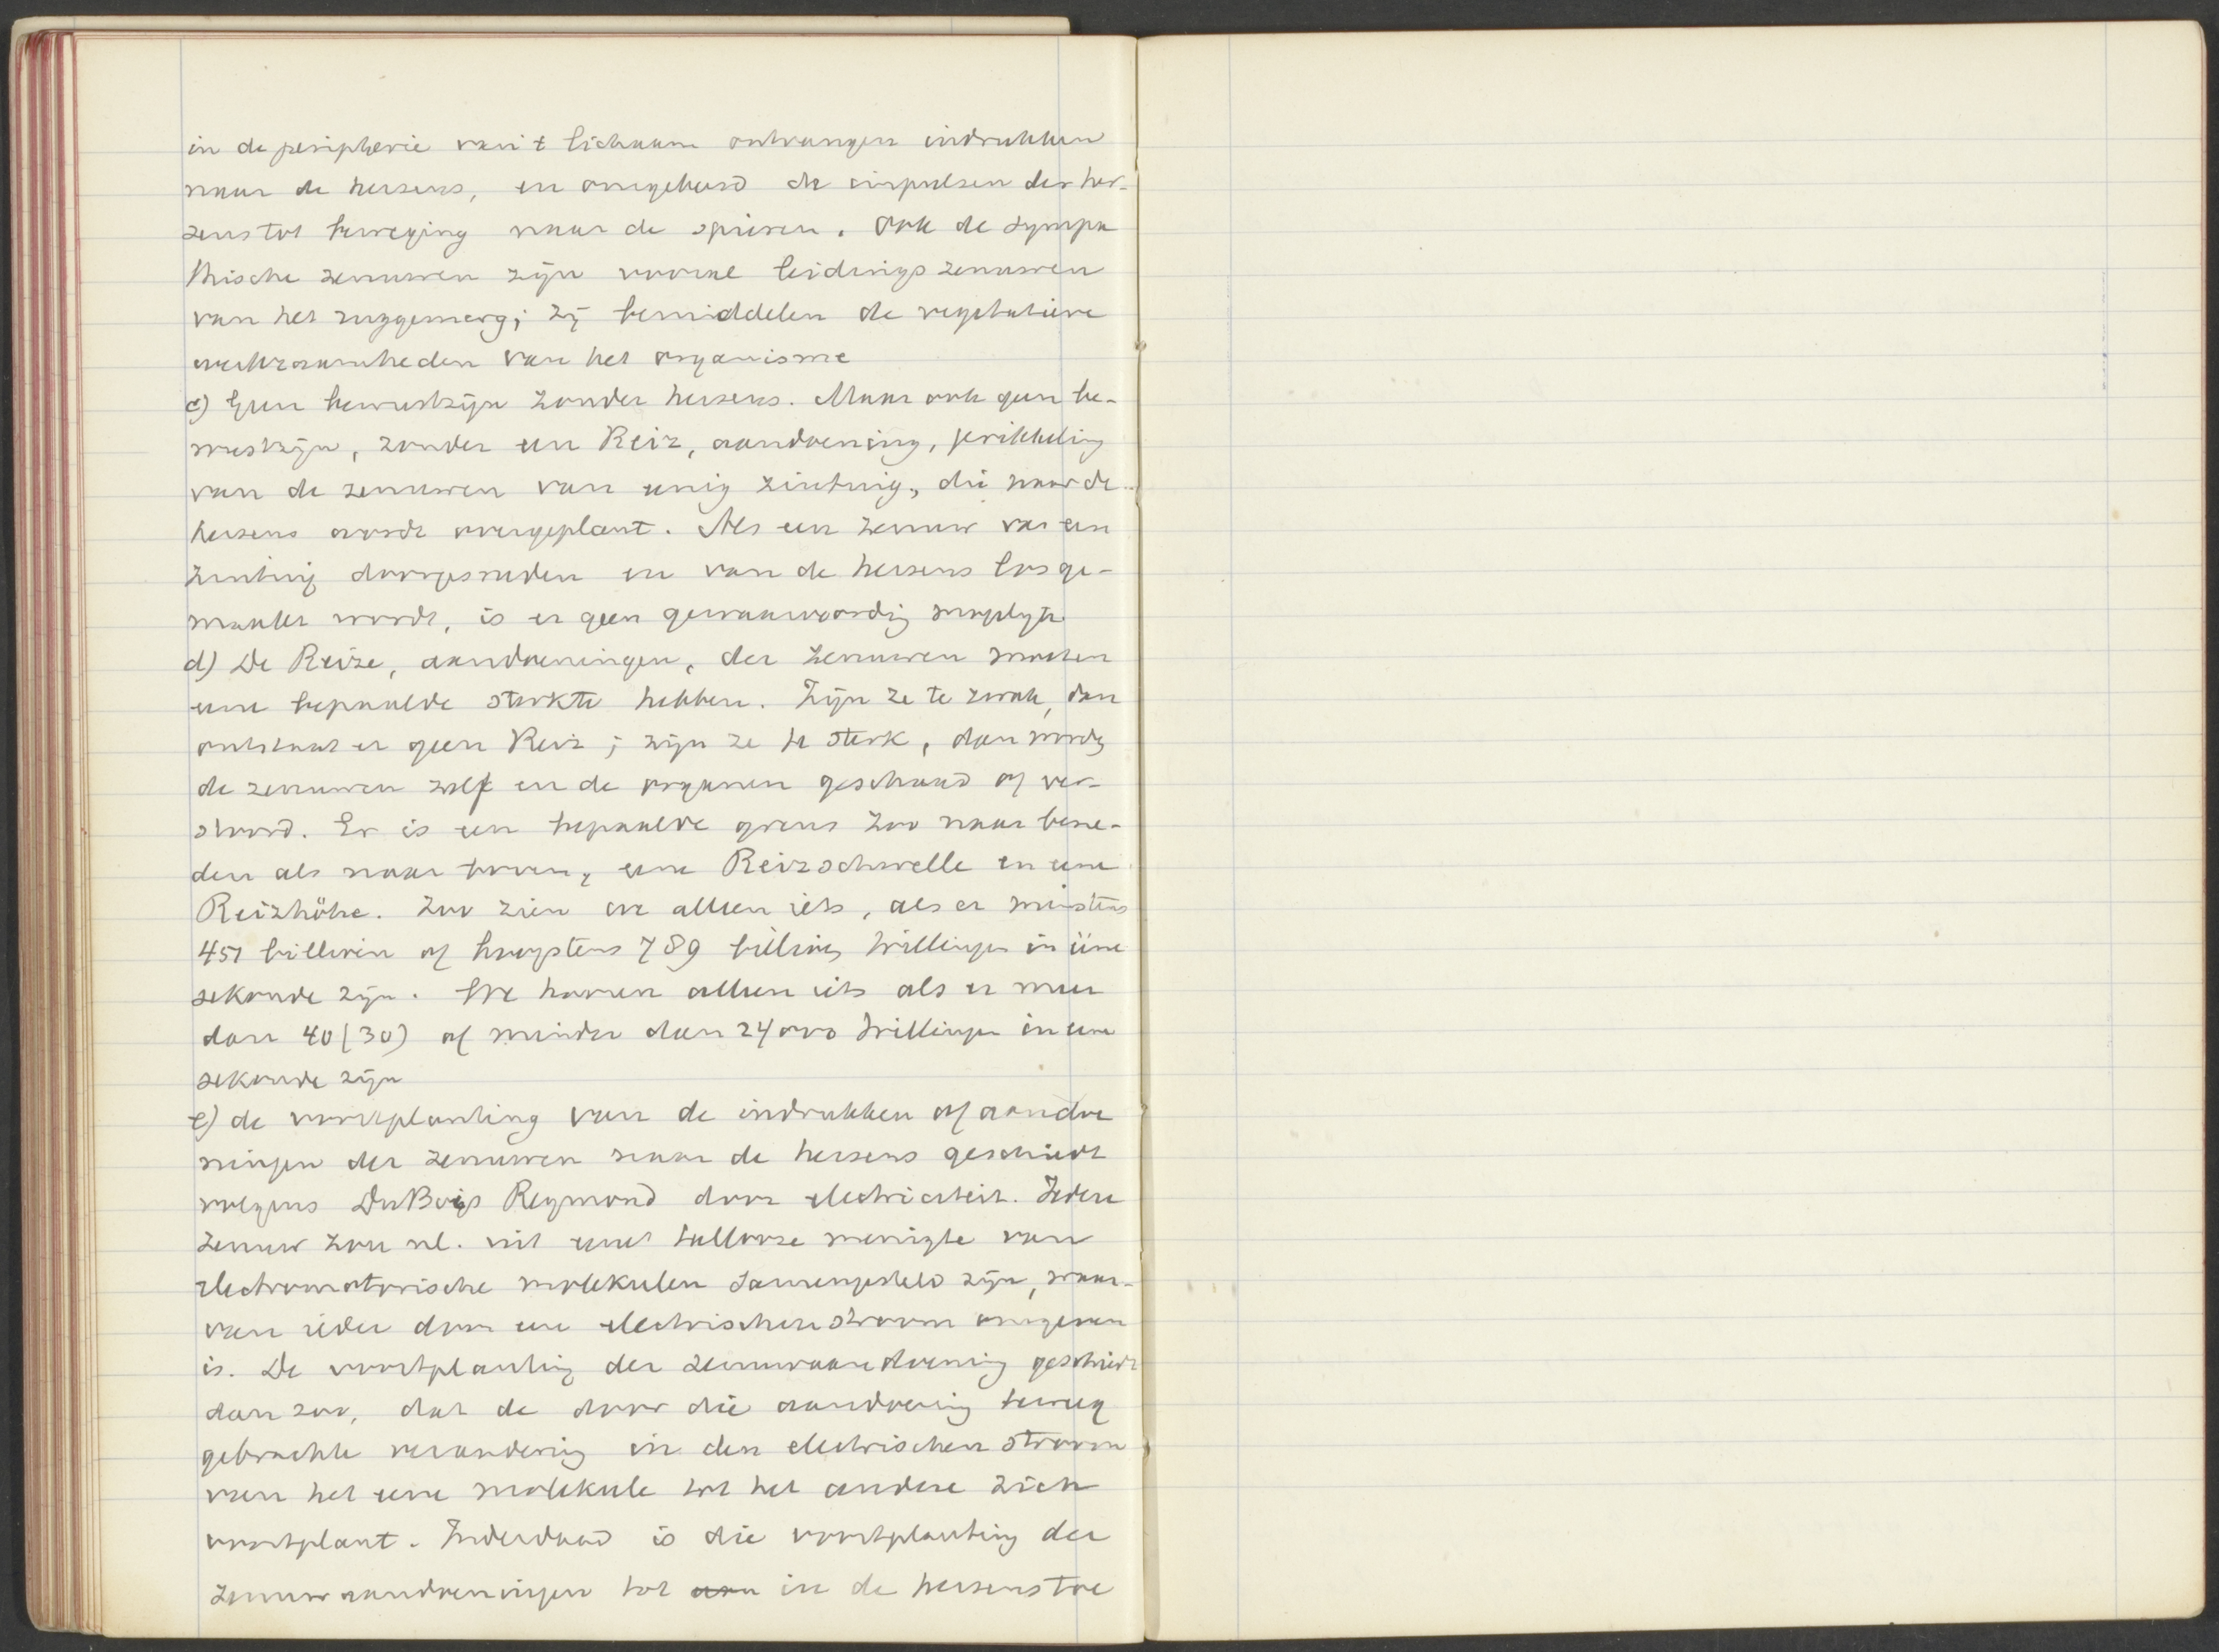 in de peripherie van 't lichaam ontvangen indrukken
naar de hersens, en omgekeerd de impulsen der her-
sens tot beweging naar de spieren. Ook de sympa
thische zenuwen zijn vooral leidingszenuwen
van het ruggemerg; zij bemiddelen de vegetatieve
werkzaamheden van het organisme
c) Geen bewustzijn zonder hersens. Maar ook geen be-
wustzijn, zonder een Reiz, aandoening, prikkeling
van de zenuwen van eenig zintuig, die naar de
hersens wordt overgeplant. Als een zenuw van een
zintuig doorgesneden en van de hersens losge-
maakt wordt, is er geen gewaarwording mogelijk.
d) De Reize, aandoeningen, der zenuwen moeten
eene bepaalde sterkte hebben. Zijn ze te zwak, dan
ontstaat er geen Reiz; zijn ze te sterk, dan worden
de zenuwen zelf en de organen geschaad of ver-
stoord. Er is een bepaalde grens zoo naar bene-
den als naar boven, eene Reizschwelle en eene
Reizhöhe. Zoo zien we alleen iets, als er minstens
451 billioen of hoogstens 789 billioen trillingen in ééne
sekonde zijn. We hooren alleen iets als er meer
dan 40 (30) of minder dan 24000 trillingen in eene
sekonde zijn
e) de voortplanting van de indrukken of aandoe
ningen der zenuwen naar de hersens geschiedt
volgens DuBois Reymond door electriciteit. Iedere
zenuw zou nl. uit eene tallooze menigte van
electromotorische molekulen samengesteld zijn, waar-
van ieder door een electrischen stroom omgeven
is. De voortplanting der zenuwaandoening geschiedt
dan zoo, dat de door die aandoening teweeg
gebrachte verandering in den electrischen stroom
van het eene molekule tot het andere zich
voortplant. Inderdaad is die voortplanting der
zenuwaandoeningen tot aan in de hersens toe